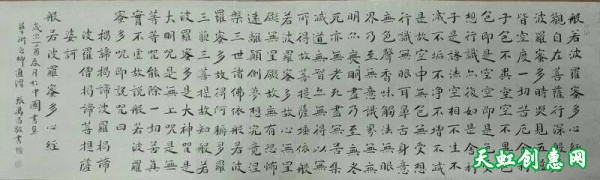 般若波羅蜜多心經
觀自在菩薩行深般若
波羅蜜多時照見五蘊
皆空度一切苦厄舍利
子色不異空空不異色
色即是空空即是色受
想行識亦復如是舍利
子是諸法空相不生不
滅不垢不淨不增不減
是故空中無色無受想
行識無眼耳鼻舌身
意無色聲香味觸法無眼
界乃至無意識界無無
明亦無無明盡乃至無老
死亦無老死盡無苦集
滅道無智亦無得以無所得
故菩提薩埵依般
若波羅蜜多故心無罣礙
無罣礙故無有恐怖
遠離顛倒夢想究竟涅
槃三世諸佛依般若波
羅蜜多故得阿耨多羅
三藐三菩提故知般若
波羅蜜多是大神咒是
大明咒是無上咒是無等
等咒能除一切苦真
實不虛故說般若波羅
蜜多咒即說咒曰
揭諦揭諦波羅揭諦
波羅僧揭諦菩提薩
婆訶
般若波羅蜜多心經
丁酉春月於中國
敬書
天虹创惠网